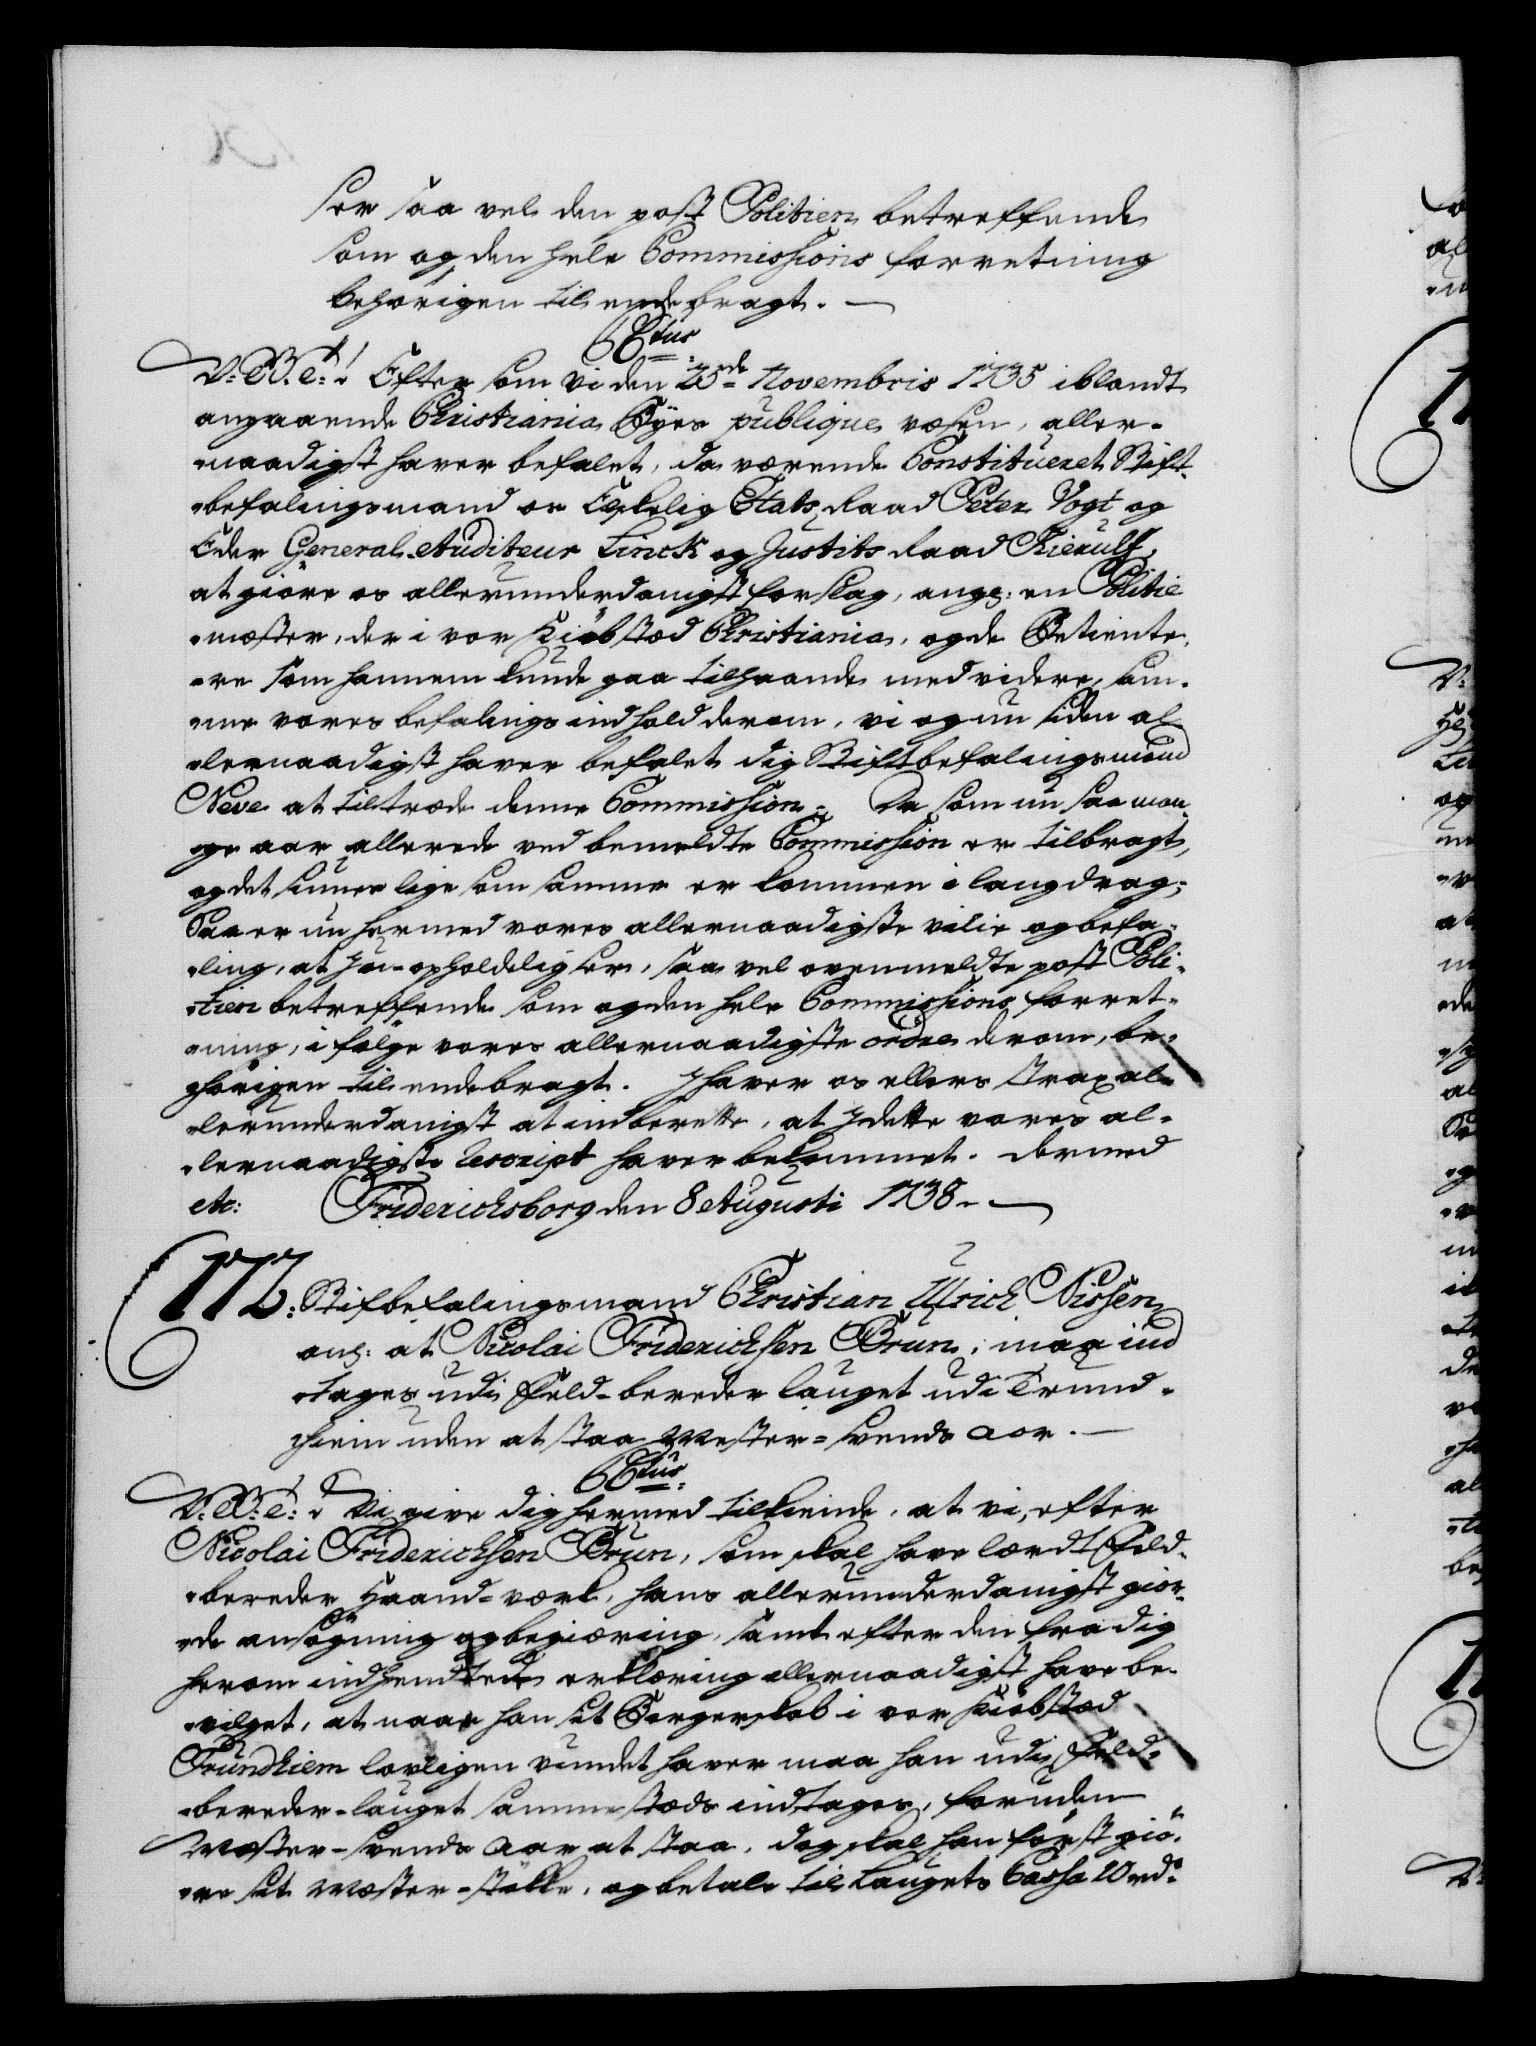 seer saa vel den post Politien betreffende
som og den hele Commissions forretning
behörigen til endebragt.
C6tus
V: G: T: Efter som vi den 25de Novembris 1735 iblandt
angaaende Christiania Byes publique væsen, aller-
naadigst haver befalet, da værende Constitueret Stift-
befalingsmand os Elskelig Etats Raad Peter Vogt og
Eder General-Auditeur Linck og Justits Raad Kierulf,
at giöre os allerunderdanigst forslag, angl: en Politie
mæster, der i vor Kiöbstæd Christiania, og de Betiente,
som hannem kunde gaa tilhaande med videre, sam-
me vores befalings indhold derom, vi og nu siden al-
lernaadigst haver befalet dig Stiftbefalingsmand
Neve at tiltræde denne Commission; Da som nu saa man
ge aar allerede ved bemeldte Commission er tilbragt,
og det siunes lige som samme er kommen i langdrag;
Saa er nu hermed vores allernaadigste vilie og befa-
ling, at I u-opholdelig seer, saa vel ovenmeldte post Poli-
tien betreffende som og den hele Commissions forret-
ning, i fölge vores allernaadigste ordre derom, be-
hörigen til endebragt. I haver os ellers strax al-
lerunderdanigst at indberette, at I dette vores al-
lernaadigste Rescript haver bekommet. dermed
etc: Friderichsborg den 8 Augusti 1738.
172. Stifbefalingsmand Christian Ulrich Nissen
anl: at Nicolai Friderichsen Brun, maa ind
tages udi Feld-bereder lauget udi Trund-
hiem uden at staa Mester-svends aar.
C6tus
V: G: T: Vi give dig hermed tilkiende, at vi, efter
Nicolai Friderichsen Brun, som skal have lærdt Feld-
bereder Haand-værk, hans allerunderdanigst gior-
de ansögning og begiæring, samt efter den fra dig
herom indhendtede erklæring allernaadigst have be-
vilget, at naar han sit Borgerskab i vor Kiöbstæd
Trundhiem lovligen vundet haver maa han udi Feld-
bereder-lauget sammestæds indtages, foruden
Mæster-svends aar at staa, dog skal han först giö-
re sit Mæster-stökke, og betale til Laugets Cassa 10 rd: